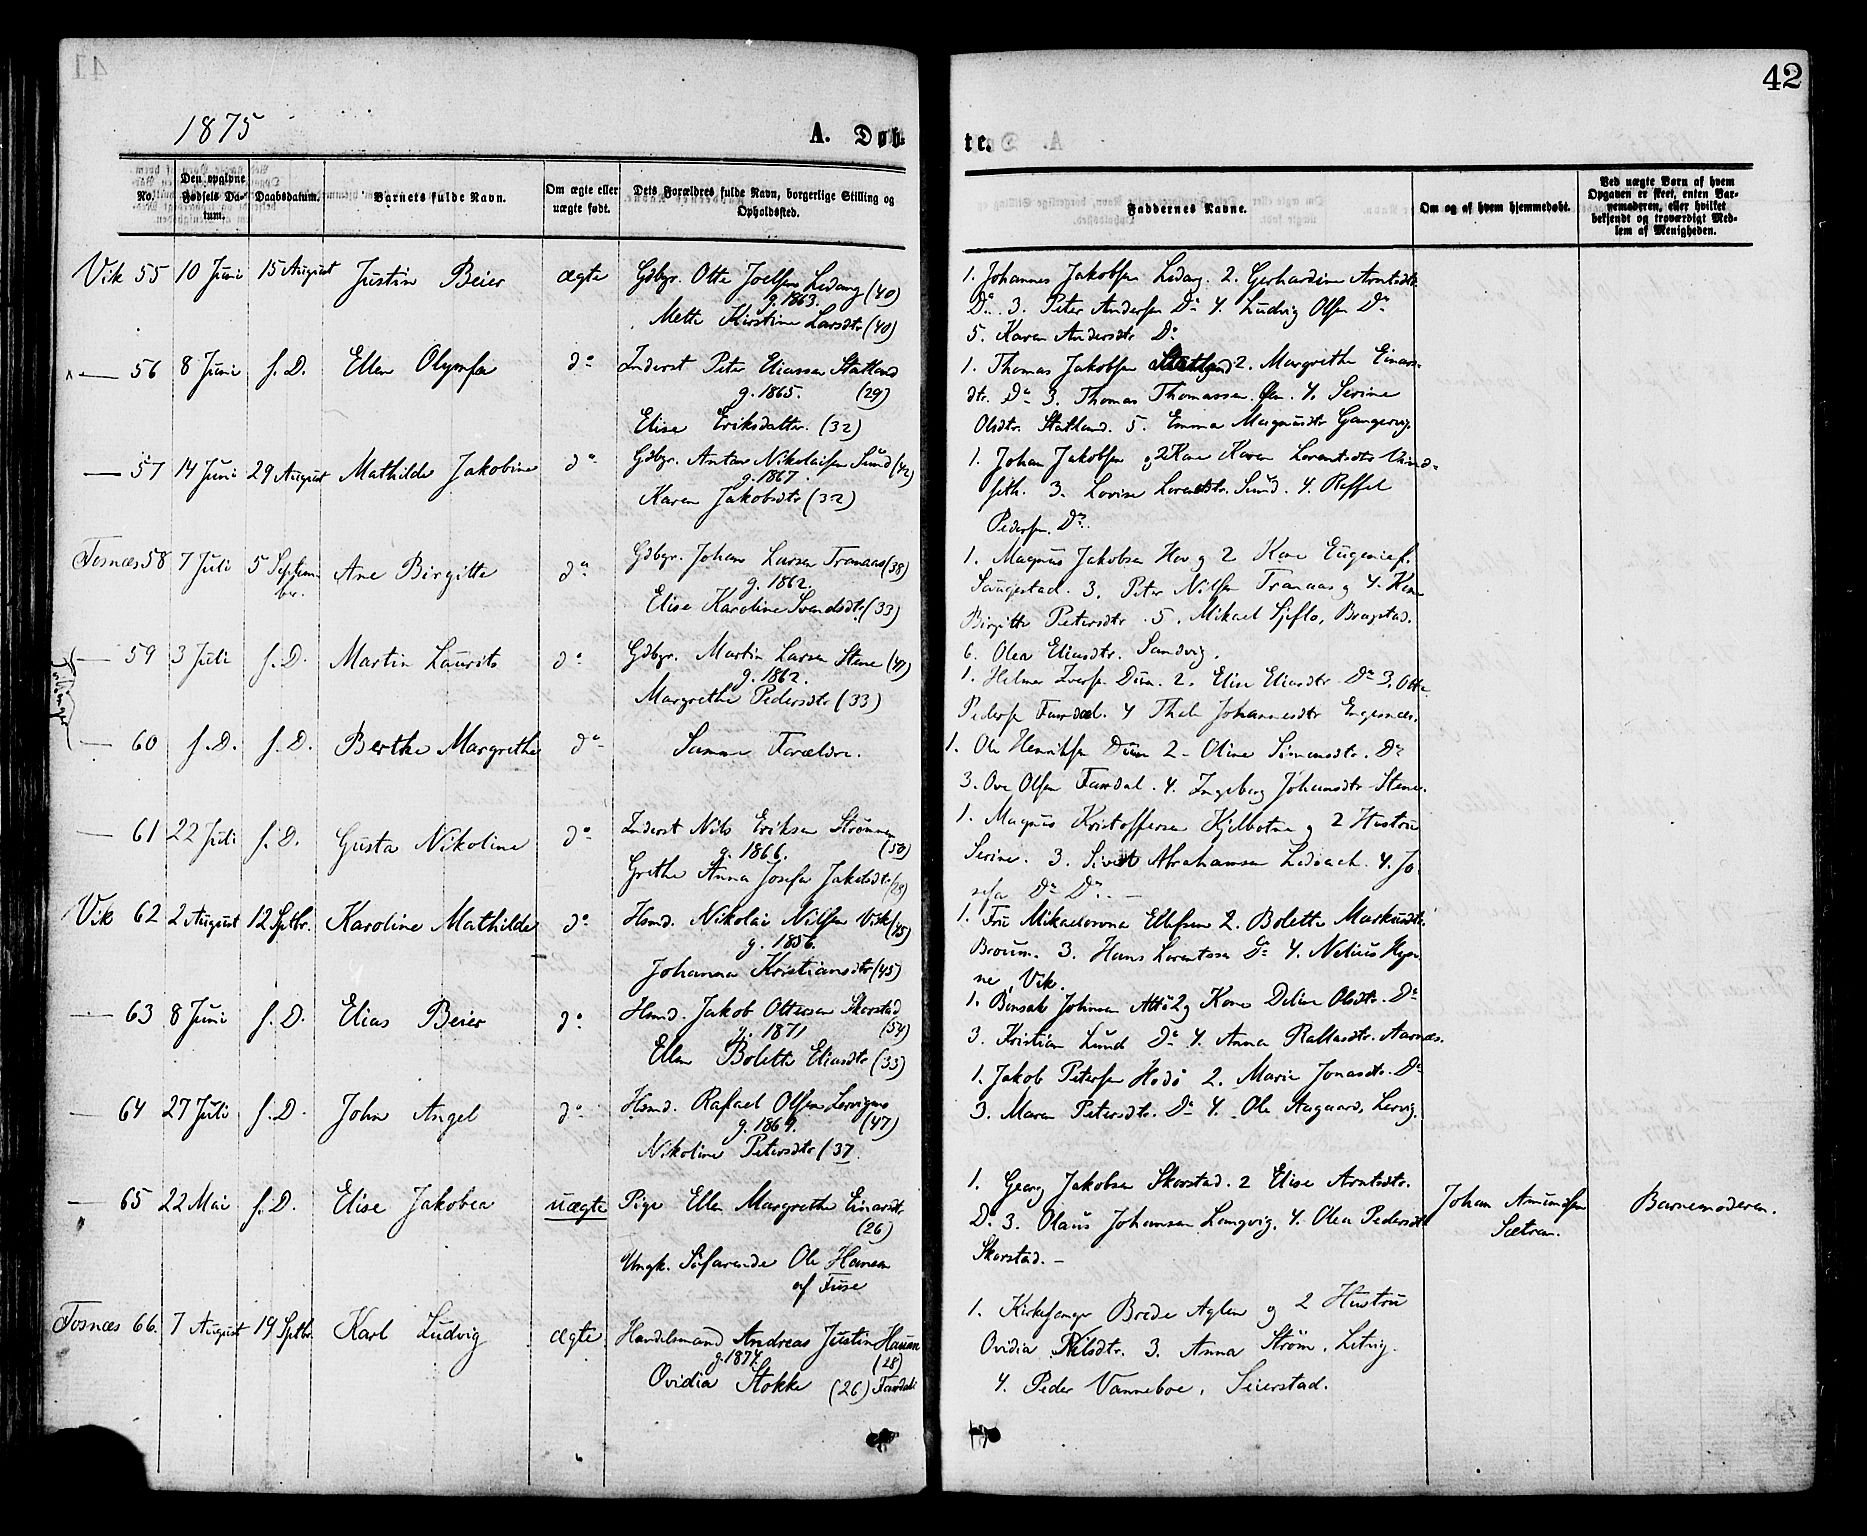 42
1875
A. Døb-
te.
No.
Den opgivne Fødsels Da-
tum.
Daabsdatum.
Barnets fulde Navn.
Om ægte eller
uægte født.
Dets Forældres fulde Navn, borgerlige Stilling og
Opholdssted.
Faddernes Navne.
Om og af hvem hjemmedøbt.
Ved uægte Børn af hvem
Opgaven er skeet, enten Bar-
nemoderen, eller hvilket
bekjendt og troværdigt Med-
lem af Menigheden.
Vik 55 10 Juni 15 August Justin Beier ægte Gdbgr. Otte Joelsen Ledang (40)
g. 1863.
Mette Kirstine Larsdtr (40)
1. Johannes Jakobsen Ledang. 2. Gerhardine Arntsdtr.
Do. 3. Peter Andersen Do 4. Ludvig Olsen Do
5. Karen Andersdtr Do
56 8 Juni s. D. Ellen Olympa do Inderst Peter Eliassen Statland
g. 1865. (29)
Elise Eriksdatter. (32)
1. Thomas Jakobsen Statland 2. Margrethe Einars-
dtr. Do 3. Thomas Thomassen 4. Serine
Olsdtr. Statland. 5. Emma Magnusdtr
57 14 Juni 29 August Mathilde Jakobine do Gdbgr. Anton Nikolaisen Sund (42)
g. 1867.
Karen Jakobsdtr (32)
1. Johan Jakobsen og 2 Kone Karen Lorentsdtr
3. Lovise Lorentsdtr. Sund. 4. Reffel
Pedersen. Do.
Fosnæs 58 7 Juli 5 Septem-
ber.
Ane Birgitte do Gdbgr. Johan Larsen Tranaas (38)
g. 1862.
Elise Karoline Svendsdtr (33)
1. Magnus Jakobsen Hov og 2 Kone Eugenie f.
Saugestad. 3. Peter Nilsen Tranaas og 4. Kone
Birgitte Petersdtr. 5. Mikael Sjeflo, Bragstad.
6. Olea Eliasdtr. Sandvig.
Tvillinger
59 3 Juli s. D. Martin Laurits do Gdbgr. Martin Larsen Stene (47)
g. 1862.
Margrethe Pedersdtr (33)
1. Helmer Iversen Duun. 2. Elise Eliasdtr Do 3. Otte
Pedersen Faksdal. 4 Thale Johannesdtr Engesnæs.
60 s. D. s. D. Berthe Margrethe do Samme Forældre.
1. Ole Henriksen Duun 2. Oline Simonsdtr. Do
3. Ove Olsen Faksdal. 4. Ingeborg Johansdtr Stene.
61 22 Juli s. D. Gusta Nikoline do Inderst Nils Eriksen Strømnen
g. 1866. (50)
Grethe Anna Josefa Jakobsdtr (29)
1. Magnus Kristoffersen Kjelbotnen og 2 Hustru
Serine. 3. Sivert Abrahamsen 4. Jo-
sefa Do Do.
Vik 62 2 August 12 Sptbr. Karoline Mathilde do Hsmd. Nikolai Nilsen Vik (45)
g. 1856.
Johanna Kristiansdtr (45)
1. Fru Ellefsen 2. Bolette Markusdtr
Broum. 3. Hans Lorentsen Do 4. Nelius
Vik.
63 8 Juni s. D. Elias Beier do Hsmd. Jakob Ottersen Skorstad
g. 1871 (54)
Ellen Bolette Eliasdtr (33)
1. Johnsen 2 og Kone Olsdtr. Do
3. Kristian Lund Do 4. Anna Aarnes.
64 27 Juli s. D. John Angel do Hsmd. Rafael Olsen
g. 1869. (47)
Nikoline Petersdtr (37.
1. Jakob Petersen Hodø 2. Marie Jonasdtr. Do
3. Maren Petersdtr. Do 4. Ole Aagaard, Lervig.
65 22 Mai s. D. Elise Jakobea uægte Pige Ellen Margrethe Einarsdt.
(26)
Ungk. Søfarende Ole Hansen
af Fuse
1. Georg Jakobsen Skorstad. 2 Elise Arntsdtr.
Do 3. Olaus Johansen Langvig. 4. Olea Pedersdt
Skorstad. –
Johan Amundsen
Sætran.
Barnemoderen.
Fosnæs 66. 7 August 19 Sptbr. Karl Ludvig ægte. Handelsmand Andreas Justin Hansen
g. 1874. (28)
Ovidia Stokke (26) Faksdal
1. Kirkesanger Brede Aglen og 2 Hustru
Ovidia Nilsdtr. 3. Anna Strøm, Letvig.
4. Peder Vanneboe, Seierstad.